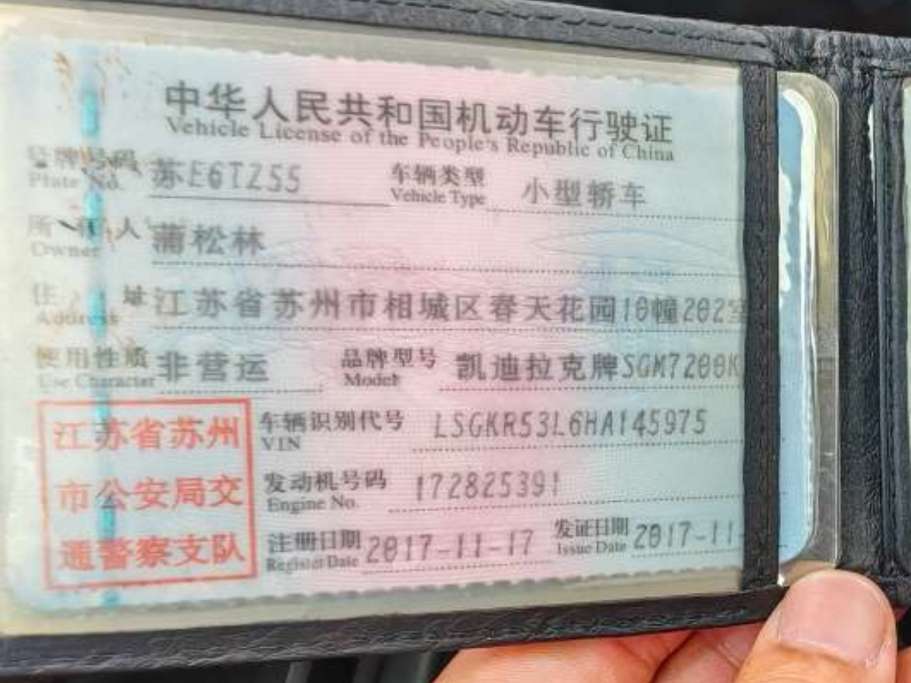 中华人民共和国机动车行驶证
Vehicle License of the People's Republic of China
号牌号码 苏E6TZ55 车辆类型 小型轿车
Plate No. Vehicle Type
所有人 蒲松林
Owner
住址 江苏省苏州市相城区春天花园10幢202室
Address
使用性质 非营运 品牌型号 凯迪拉克牌SGM7200K
Use Character Model
江苏省苏州 车辆识别代号 LSGKR53L6HA145975
VIN
市公安局交 发动机号码 172825391
Engine No.
通警察支队 注册日期 2017-11-17 发证日期 2017-11-
Register Date Issue Date